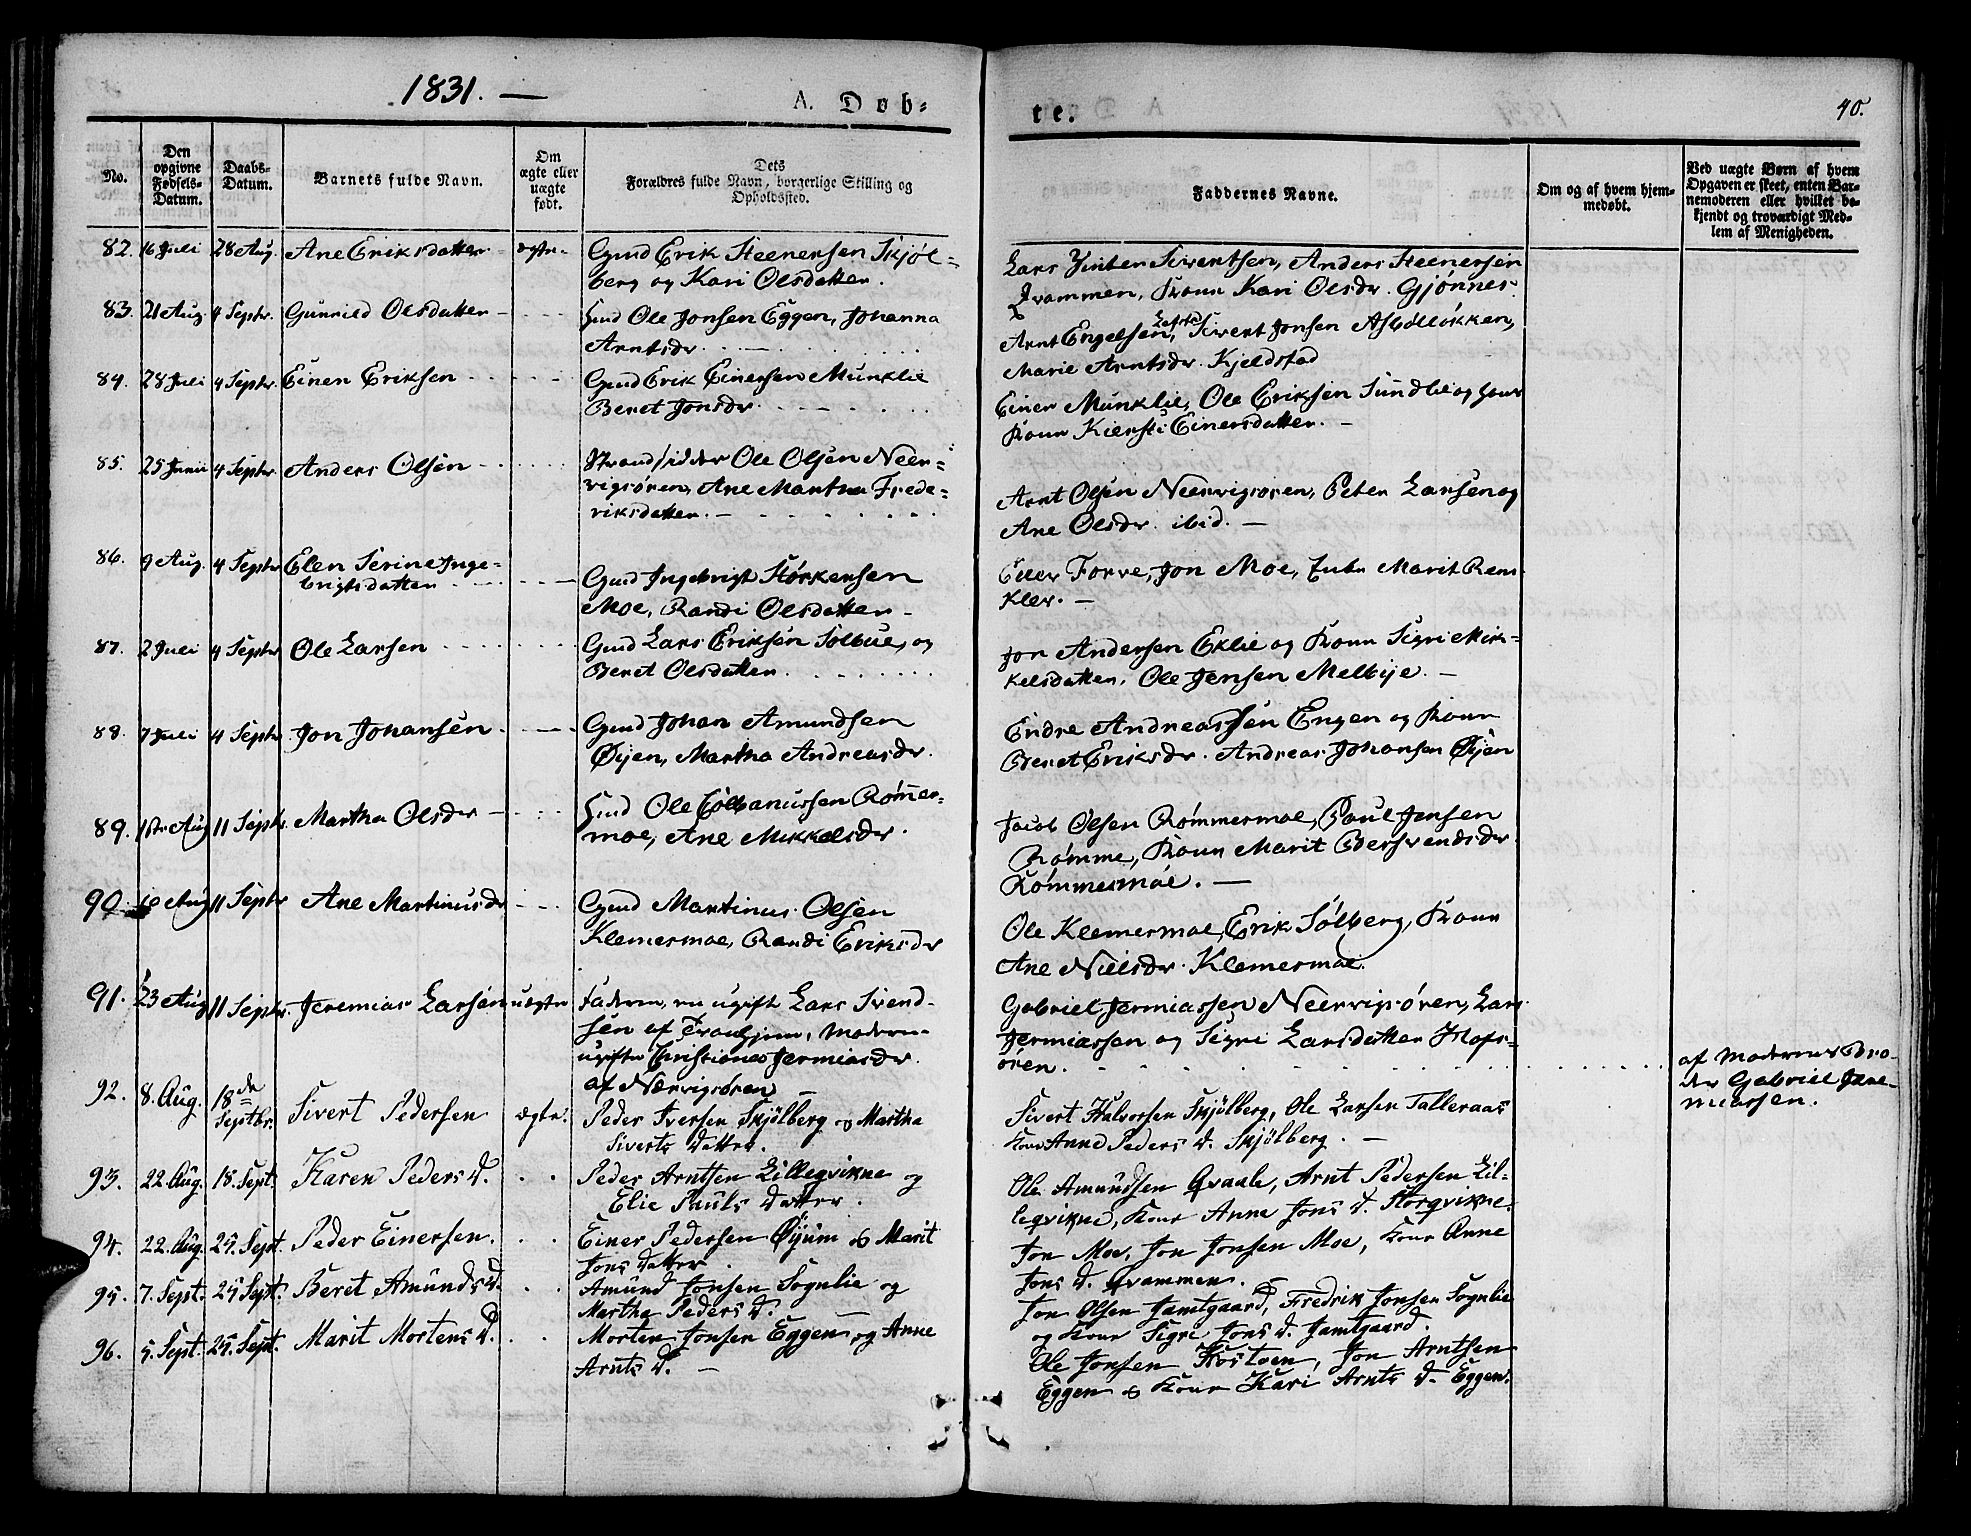 1831. —
A. Døb-
te.
40.
No.
Den opgivne Fødsels-Datum.
Daabs-Datum.
Barnets fulde Navn.
Om ægte eller uægte født.
Dets Forældres fulde Navn, borgerlige Stilling og Opholdssted.
Faddernes Navne.
Om og af hvem hjemmedøbt.
Ved uægte Børn af hvem Opgaven er skeet, enten Barnemoderen eller hvilket bekjendt og troværdigt Medlem af Menigheden.
82. 16 Juli 28 Aug. Ane Eriksdatter ægte Gmd Erik Steenersen Skjøl-
berg og Kari Olsdatter.
Lars Sivertsen, Anders Steenersen
Drammen, Kone Kari Olsdr. Gjønnes.
83. 21 Aug. 4 Septr. Gunnild Olsdatter Hmd Ole Jonsen Eggen, Johanna
Arntsdr.
Arnt Engelsen, Sivert Jonsen Asbølløkken,
Marie Arntsdr. Kjeldstad
84. 28 Juli 4 Septr. Einer Eriksen Gmd Erik Einersen Munklie
Beret Jonsdr.
Einer Munklie, Ole Eriksen Sundlie og hans
Kone Kiersti Einersdatter. —
85. 25 Junii 4 Septr. Anders Olsen Strandsidder Ole Olsen Neer-
vigsøren, Ane Martha Frede-
riksdatter. —
Arnt Olsen Neervigsøren, Peter Larsen og
Ane Olsdr. ibid. —
86. 9 Aug. 4 Septr. Elen Serine Inge-
brigtsdatter
Gmd Ingebrigt Størkersen
Moe, Randi Olsdatter
Eller Forve, Jon Moe, Enke Marit Rens-
klev. —
87. 2 Juli 4 Septr. Ole Larsen Gmd Lars Eriksen Solbue, og
Beret Olsdatter.
Jon Andersen Eklie og Kone Sigri Mik-
kelsdatter, Ole Jensen Melbye. —
88. 7 Juli 4 Septr. Jon Johansen Gmd Johan Amundsen
Øyen, Martha Andreasdr.
Endre Andreassen Engen og Kone
Beret Eriksdr. Andreas Johansen Øyen
89. Aug 11 Septr. Martha Olsdr Hmd Ole Rømmer-
moe, Ane Mikkelsdr.
Jacob Olsen Rømmermoe, Paul Jensen
Rømme, Kone Marit Bersvendsdr.
Rømmermoe. —
90. 10 Aug 11 Septr Ane Martinusdr Gmd Martinus Olsen
Klemermoe, Randi Eriksdr
Ole Klemermoe, Erik Sølberg, Kone
Ane Nielsdr. Klemermoe.
91. 23 Aug 11 Septr. Jeremias Larsen uægte Faderen, en ugift Lars Svend-
sen af Trondhjem, Moderen
ugifte Christiane Jermiasdr.
af Nærvigsøren
Gabriel Jermiassen Neervigsøren, Lars
Jermiassen og Sigri Larsdatter Hofs-
øren.
af Moderens Bro-
der Gabriel Jere-
miassen.
92. 8. Aug. 18de
Septbr.
Sivert Pedersen ægte. Peder Iversen Skjølberg og Martha
Siverts Datter.
Sivert Halvorsen Skjølberg, Ole Larsen Talleraas
Kone Anne Peders D. Skjølberg. —
93. 22. Aug. 18. Sept. Karen Peders D. Peder Arntsen Lillegvikne og
Elie Pauls Datter.
Ole Amundsen Qvaale, Arnt Pedersen Lil-
legvikne, Kone Anne Jons D. Storgvikne.
94. 22. Aug. 25. Sept. Peder Einersen. Einer Pedersen Øyum og Marit
Jons Datter.
Jon Moe, Jon Jonsen Moe, Kone Anne
Jons D. Qvammen.
95. 7. Sept. 25 Sept. Beret Amunds D. Amund Jonsen Sognlie og
Martha Peders D. —
Jon Olsen Jamtgaard, Fredrik Jonsen Sognlie
og Kone Sigri Jons D. Jamtgaard.
96. 5. Sept. 25. Sept. Marit Mortens D. Morten Jonsen Eggen og Anne
Arnts D. —
Ole Jonsen Kostøen, Jon Arntsen
Eggen og Kone Kari Arnts D. Eggen.